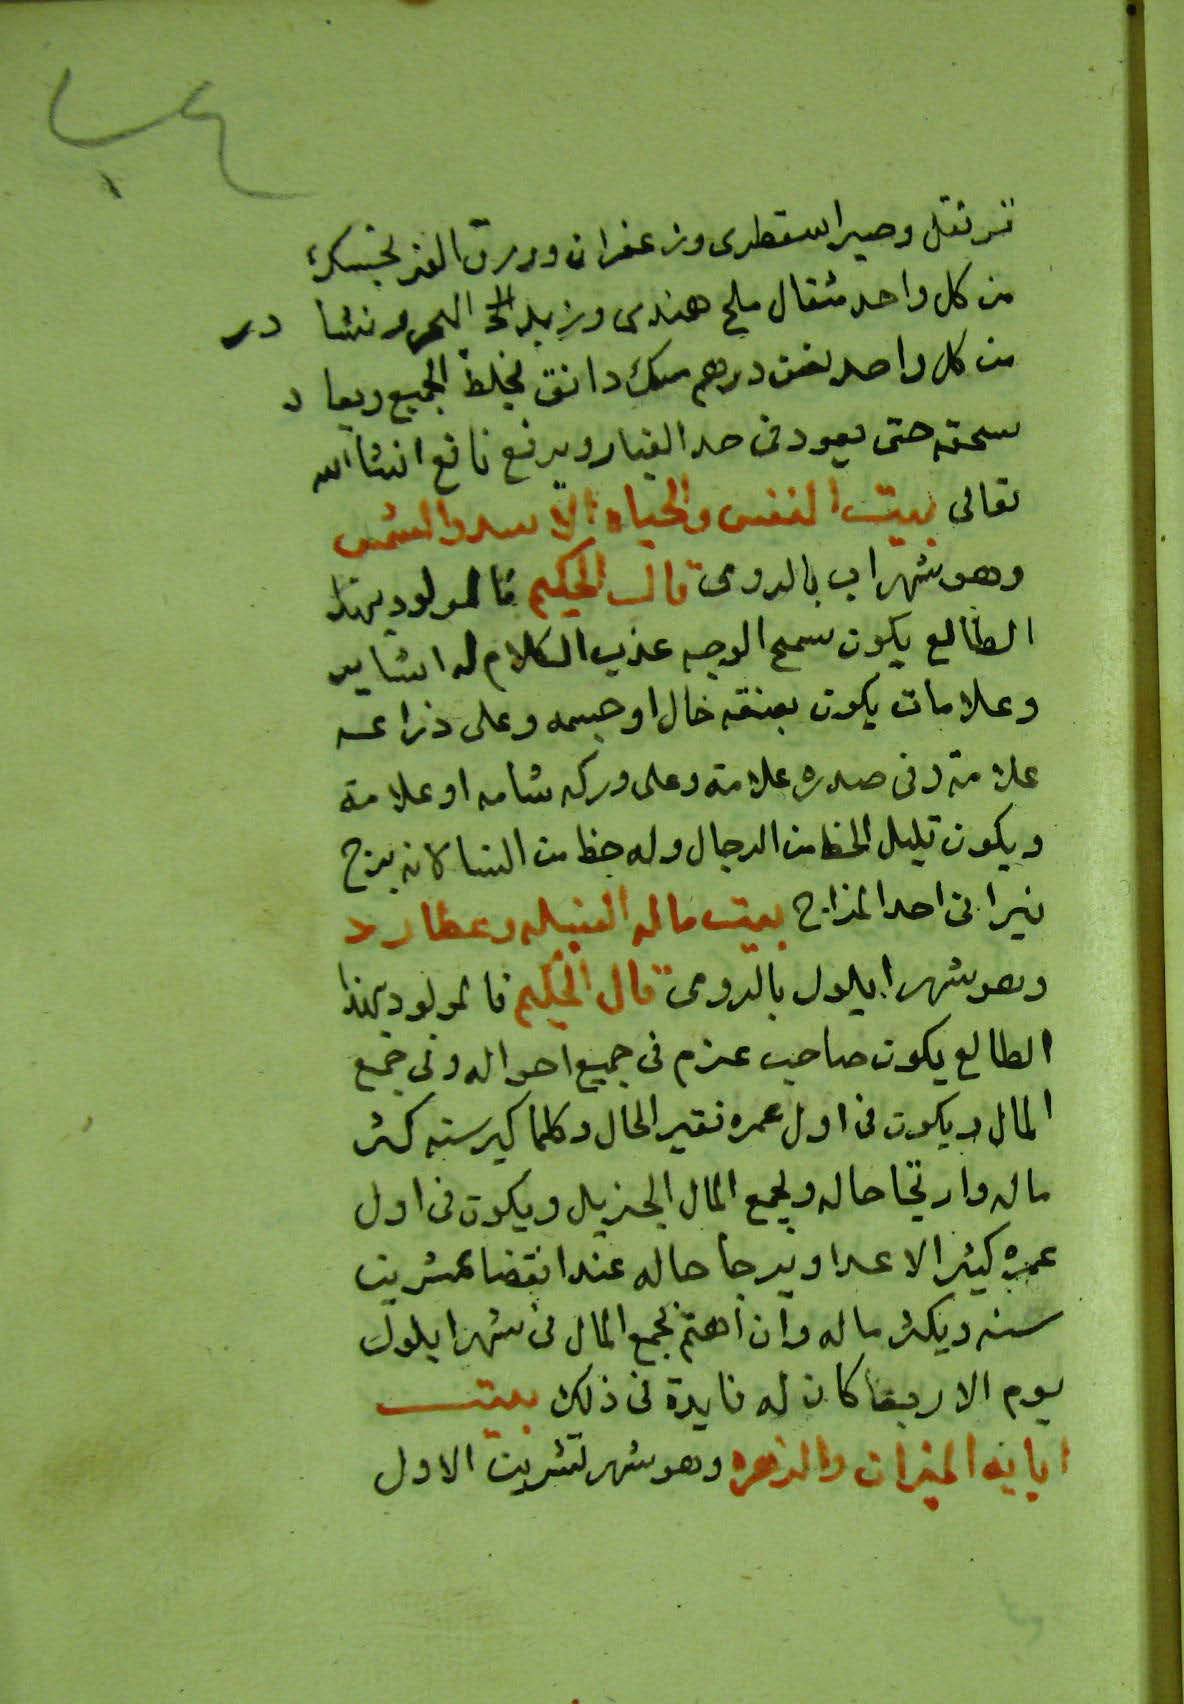 قرنفل وصبر اسقطرى وزعفران وورق الفنرنجسكرى
من كل واحد مثقال ملح هندى وزبد البحر ونشادر
من كل واحد نصف درهم مسك دانق يخلط الجميع ويعاد
سحقه حتى يعود فى حد الغبار ويرفع نافع انشا الله
تعالى بيت النفس والحياه الاسد والشمس
وهو شهر اب بالرومى قال الحكيم فالمولود بهذا
الطالع يكون سمح الوجه عذب الكلام له
وعلامات يكون بعنقه خال او جسمه وعلى ذراعه
علامة وفى صدره علامة وعلى وركه شامه او علامة
ويكون قليل الحظ من الرجال وله حظ من النسا لانه برج
نيرانى احد المزاج بيت ماله السنبله وعطارد
وهو شهر ايلول بالرومى قال الحكيم فالمولود بهذا
الطالع يكون صاحب عزم فى جميع احواله وفى جمع
المال ويكون فى اول عمره فقير الحال وكلما كبر سنه كثر
ماله وارتجا حاله ويجمع المال الجزيل ويكون فى اول
عمره كثير الاعدا ويرجا حاله عند انقضا عشرين
سنه ويكثر ماله وان اهتم بجمع المال فى شهر ايلول
يوم الاربعا كان له فايدة فى ذلك بيت
ابايه الميزان والزهره وهو شهر تشرين الاول